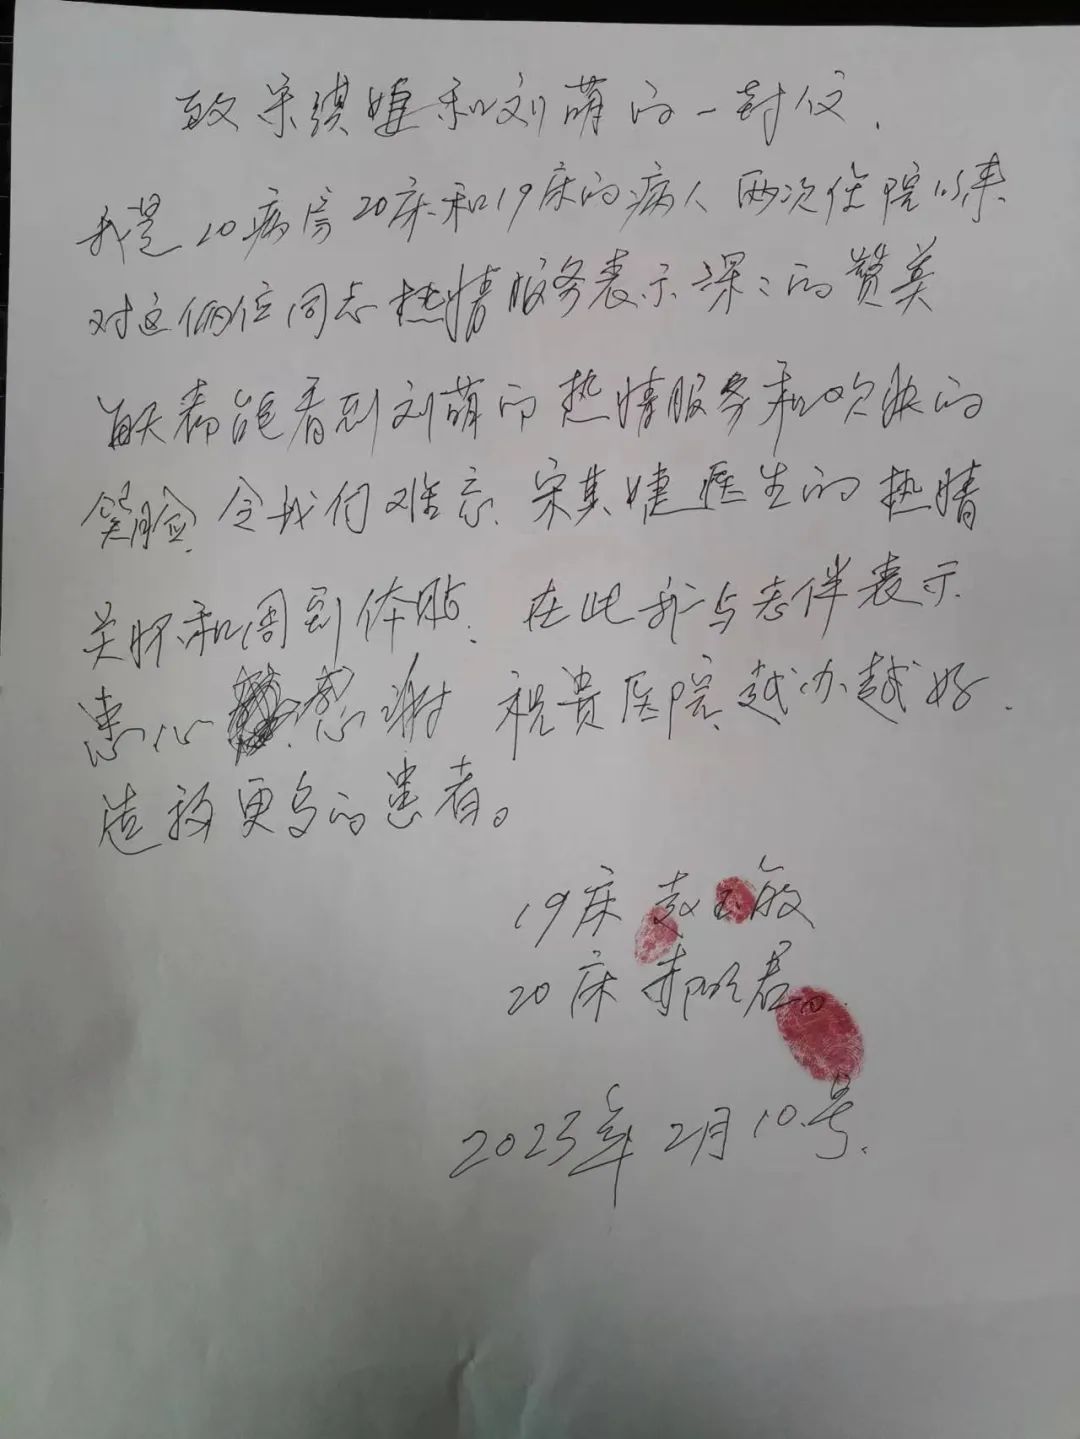 致宋綨婕和刘萌的一封仪.
我是10病房20床和19床的病人 两次住院以来
对这俩位同志热情服务表示深々的赞美
每天都能看到刘萌的热情服务和欢快的
笑脸, 令我们难忘. 宋其婕医生的热情
关怀和周到体贴. 在此我与老伴表示
衷心感谢 祝贵医院越办越好.
造福更多的患者。
19床 赵玉敏
20床 郝明君。
2023年2月10号.